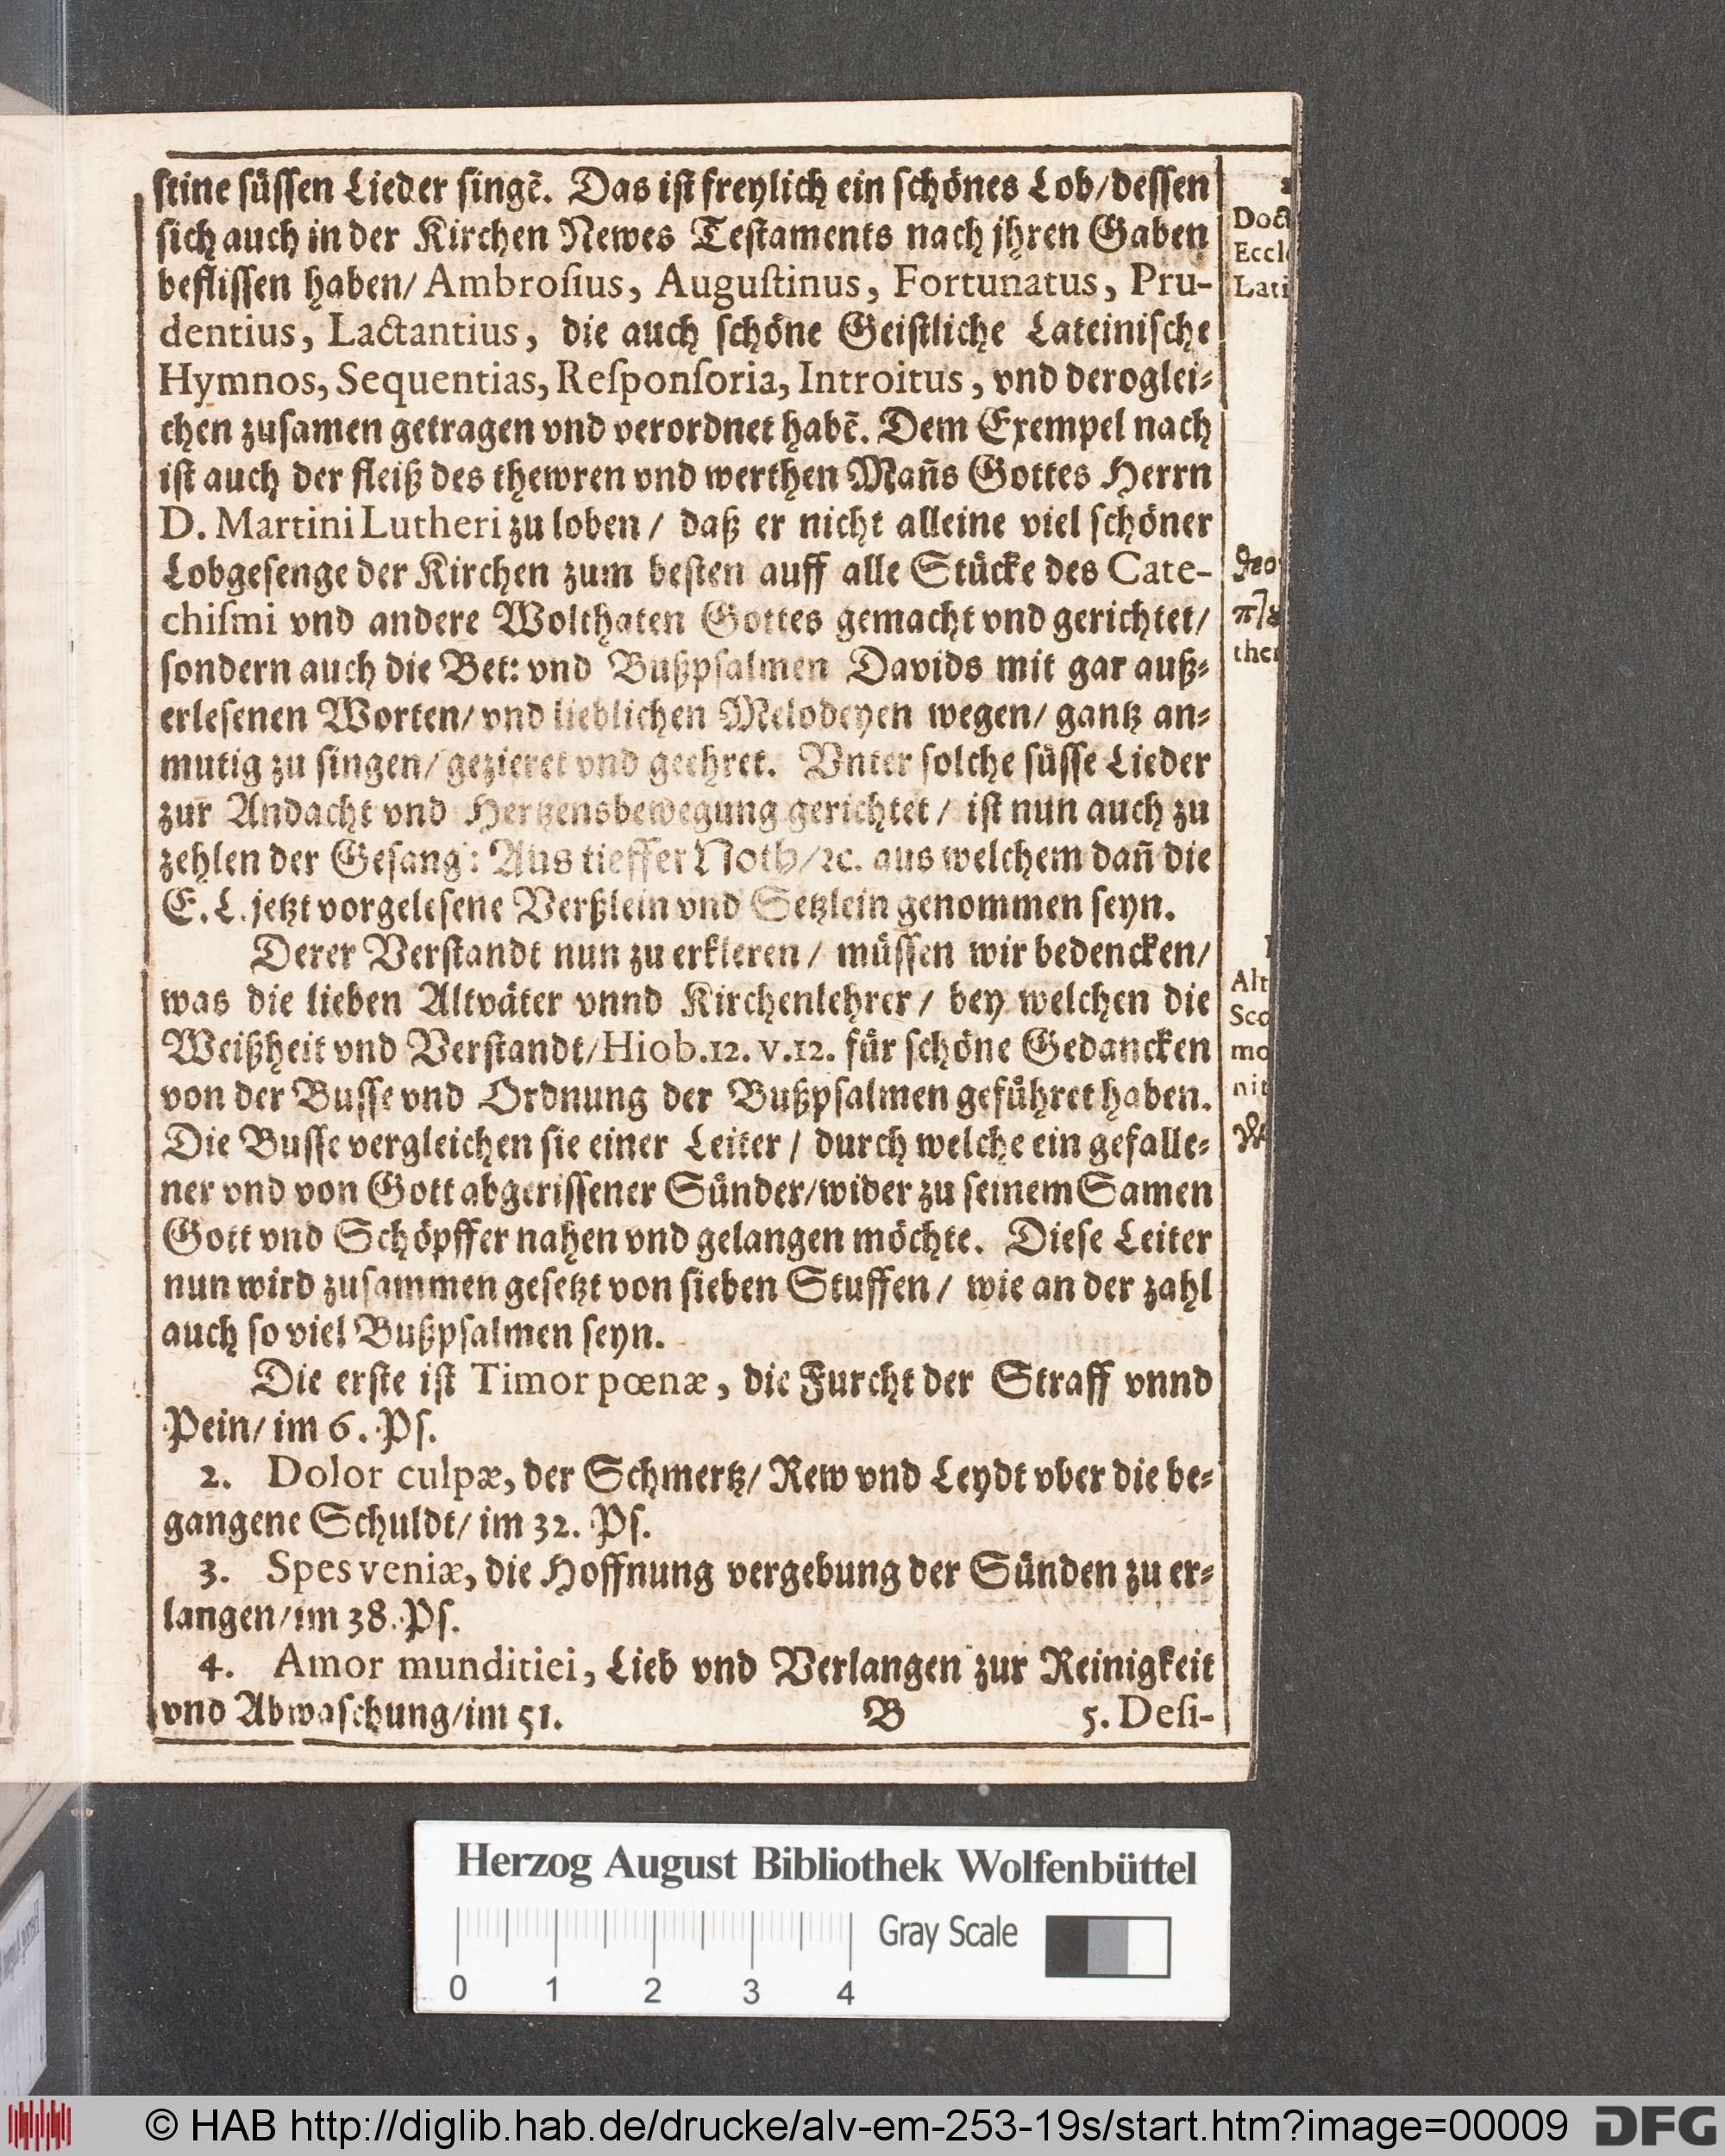 seine süssen Lieder singẽ. Das ist freylich ein schönes Lob/dessen
sich auch in der Kirchen Newes Testaments nach jhren Gaben
beflissen haben/ Ambroſius, Auguſtinus, Fortunatus, Pru-
dentius, Lactantius, die auch schöne Geistliche Lateinische
Hymnos, Sequentias, Reſponſoria, Introitus, vnd deroglei-
chen zusamen getragen vnd verordnet habẽ. Dem Exempel nach
ist auch der fleiß des thewren vnd werthen Mañs Gottes Herrn
D. Martini Lutheri zu loben / daß er nicht alleine viel schöner
Lobgesenge der Kirchen zum besten auff alle Stücke des Cate-
chiſmi vnd andere Wolthaten Gottes gemacht vnd gerichtet/
sondern auch die Bet: vnd Bußpsalmen Davids mit gar auß-
erlesenen Worten/ vnd lieblichen Melodeyen wegen/ gantz an-
mutig zu singen/ gezieret vnd geehret. Vnter solche süsse Lieder
zur Andacht vnd Hertzensbewegung gerichtet / ist nun auch zu
zehlen der Gesang: Aus tieffer Noth/ ꝛc. aus welchem dañ die
E. L. jetzt vorgelesene Verßlein vnd Setzlein genommen seyn.
Derer Verstandt nun zu erkleren / müssen wir bedencken/
was die lieben Altväter vnnd Kirchenlehrer / bey welchen die
Weißheit vnd Verstandt/Hiob.12. v.12. für schöne Gedancken
von der Busse vnd Ordnung der Bußpsalmen geführet haben.
Die Busse vergleichen sie einer Leiter / durch welche ein gefalle-
ner vnd von Gott abgerissener Sünder/wider zu seinem Samen
Gott vnd Schöpffer nahen vnd gelangen möchte. Diese Leiter
nun wird zusammen gesetzt von sieben Stuffen / wie an der zahl
auch so viel Bußpsalmen seyn.
Die erste ist Timor pœnæ, die Furcht der Straff vnnd
Pein/ im 6. Ps.
2. Dolor culpæ, der Schmertz/ Rew vnd Leydt vber die be-
gangene Schuldt/ im 32. Ps.
3. Spes veniæ, die Hoffnung vergebung der Sünden zu er-
langen/im 38. Ps.
4. Amor munditiei, Lieb vnd Verlangen zur Reinigkeit
vnd Abwaschung/im 51. B 5. Deſi-
Doct
Eccl
Lati
the
Alt
Sco
mo
nit
Herzog August Bibliothek Wolfenbüttel
0 1 2 3 4 Gray Scale
© HAB http://diglib.hab.de/drucke/alv-em-253-19s/start.htm?image=00009 DFG